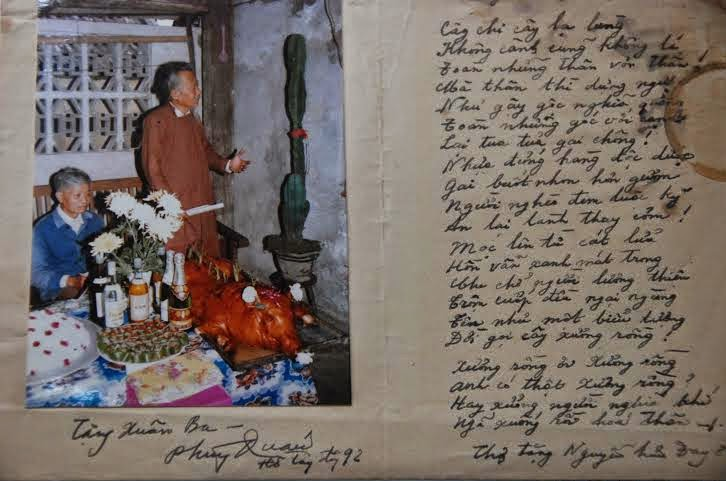 Cây chi cây lạ lùng
Không cành cũng không lá
Toàn những thân với thân!
Mà thân thì dựng ngược
Như gậy gộc nghĩa quân
Toàn những gốc với
Lại tua tủa gai chông!
Nhựa đựng hàng độc dược
Gai buốt nhọn hơn gươm
Người nghèo đem luộc kỹ
Ăn lại lành thay cơm!
Mọc lên từ cát lửa
Hồn vẫn xanh mát trong
Che chở người lương thiện
Trộm cướp đều ngại ngùng
Tên như một biểu tượng
Đời gọi cây xương rồng!
Xương rồng ơi xương rồng
Anh có thật xương rồng?
Hay xương người nghĩa khí
Ngã xuống rồi hoá thân
Thơ tặng Nguyễn Hữu Đang
Tặng Xuân Ba –
Phùng Quán
Hồ Tây 92